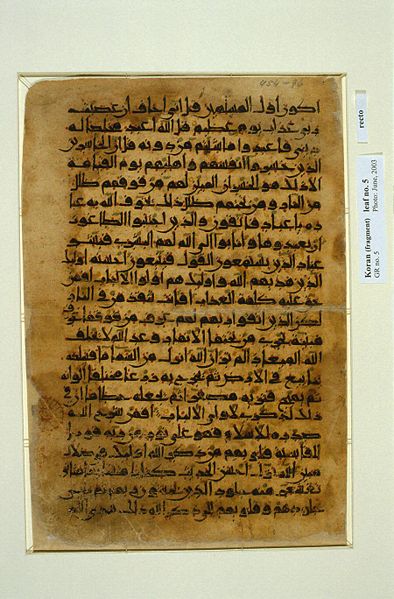 454-86
اكون اول المسلمين قل اني اخاف ان عصيت
ربي عذاب يوم عظيم قل الله اعبد مخلصا له
ديني فاعبدوا ما شئتم من دونه قل ان الخاسرين
الذين خسروا انفسهم واهليهم يوم القيامة
الا ذلك هو الخسران المبين لهم من فوقهم ظلل
من النار ومن تحتهم ظلل ذلك يخوف الله به عبا
ده يا عباد فاتقون والذين اجتنبوا الطاغوت
ان يعبدوها وانابوا الى الله لهم البشرى فبشر
عباد الذين يستمعون القول فيتبعون احسنه اولئك
الذين هديهم الله واولئك هم اولوا الالباب افمن
حق عليه كلمة العذاب افانت تنقذ من في النار
لكن الذين اتقوا ربهم لهم غرف من فوقها غرف
مبنية تجري من تحتها الانهار وعد الله لا يخلف
الله الميعاد الم تر ان الله انزل من السما ما فسلكه
ينابيع في الارض ثم يخرج به زرعا مختلفا الوانه
ثم يهيج فتريه مصفرا ثم يجعله حطاما ان في
ذلك لذكرى لاولي الالباب افمن شرح الله
صدره للاسلام فهو على نور من ربه فويل
للقاسية قلوبهم من ذكر الله اولئك في ضلال
مبين الله نزل احسن الحديث كتابا متشابها مثاني
تقشعر منه جلود الذين يخشون ربهم ثم تلين
جلودهم وقلوبهم الى ذكر الله ذلك هدى الله
recto
Koran (fragment) leaf no. 5
GR no. 5 Photo: June, 2003